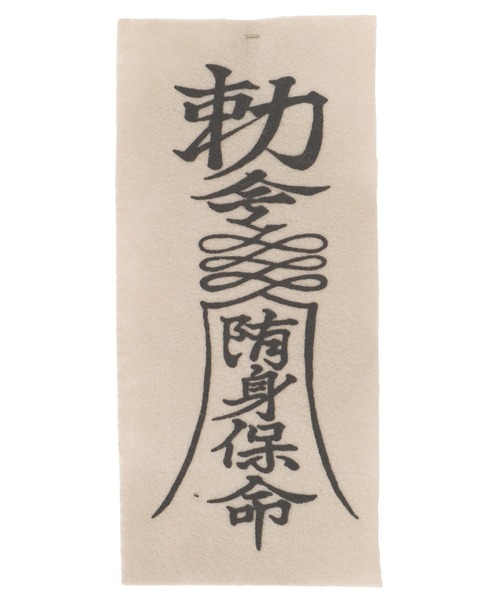 勅
令
陏
身
保
命